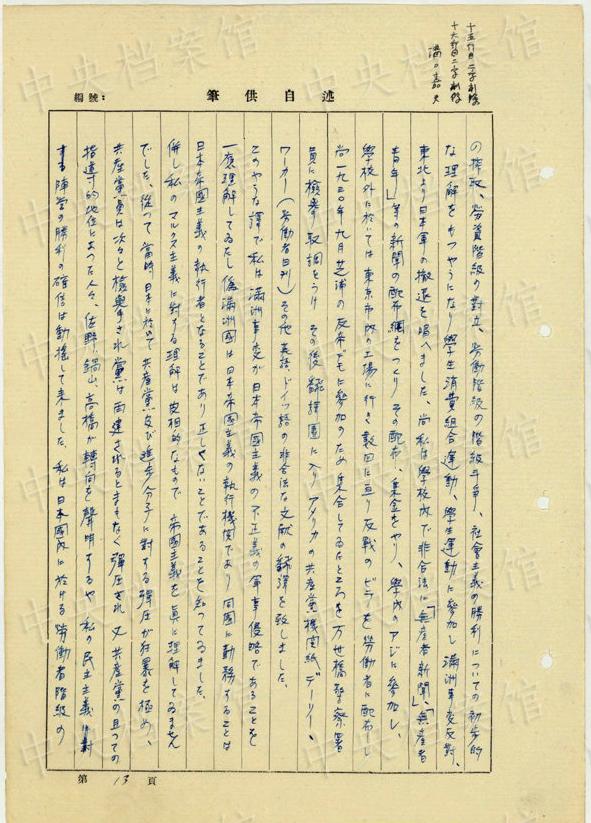 十五行目二字削除
十六行目二字削除
溝口嘉夫
編號:
筆供自述
の搾取、労資階級の対立、労働階級の階級斗争、社会主義の勝利についての初歩的
な理解をもつやうになり学生消費組合運動、学生運動に参加し満洲事変反対、
東北より日本軍の撤退を唱へました、尚私は学校内で非合法に「無産者新聞」、「無産者
青年」等の新聞の配布網をつくり その配布、集金をやり、学内のアジに参加し、
学校外に於いては東京市内の工場に行き数回に亘り反戦のビラを労働者に配布し
尚一九三〇年九月芝浦の反帝デモに参加のため集合してゐたところを万世橋警察署
員に検挙取調をうけ その後翻訳団に入りアメリカの共産党機関紙デーリー、
ワーカー(労働者日刊)その他英語、ドイツ語の非合法な文献の翻譯を致しました。
このやうな譯で私は満洲事変が日本帝國主義の不正義の軍事侵略であることを
一應理解してゐたし偽満洲國は日本帝國主義の執行機関であり同国に勤務することは
日本帝国主義の執行者となることであり正しくないことであることを知ってゐました。
併し私のマルクス主義に対する理解は皮相的なもので 帝國主義を真に理解してゐません
でした、従って当時の日本に於いて共産党及び進歩分子に対する弾圧が狂暴を極め、
共産党員は次々と検挙され党は再建されるとまもなく弾圧され 又共産党の且つての
指導的地位にあった人々、佐野、鍋山、高橋が轉向を声明するや 私の民主主義に対
する陣営の勝利の確信は動揺して来ました、私は日本國内に於ける労働者階級の
第 13 頁
中央档案馆